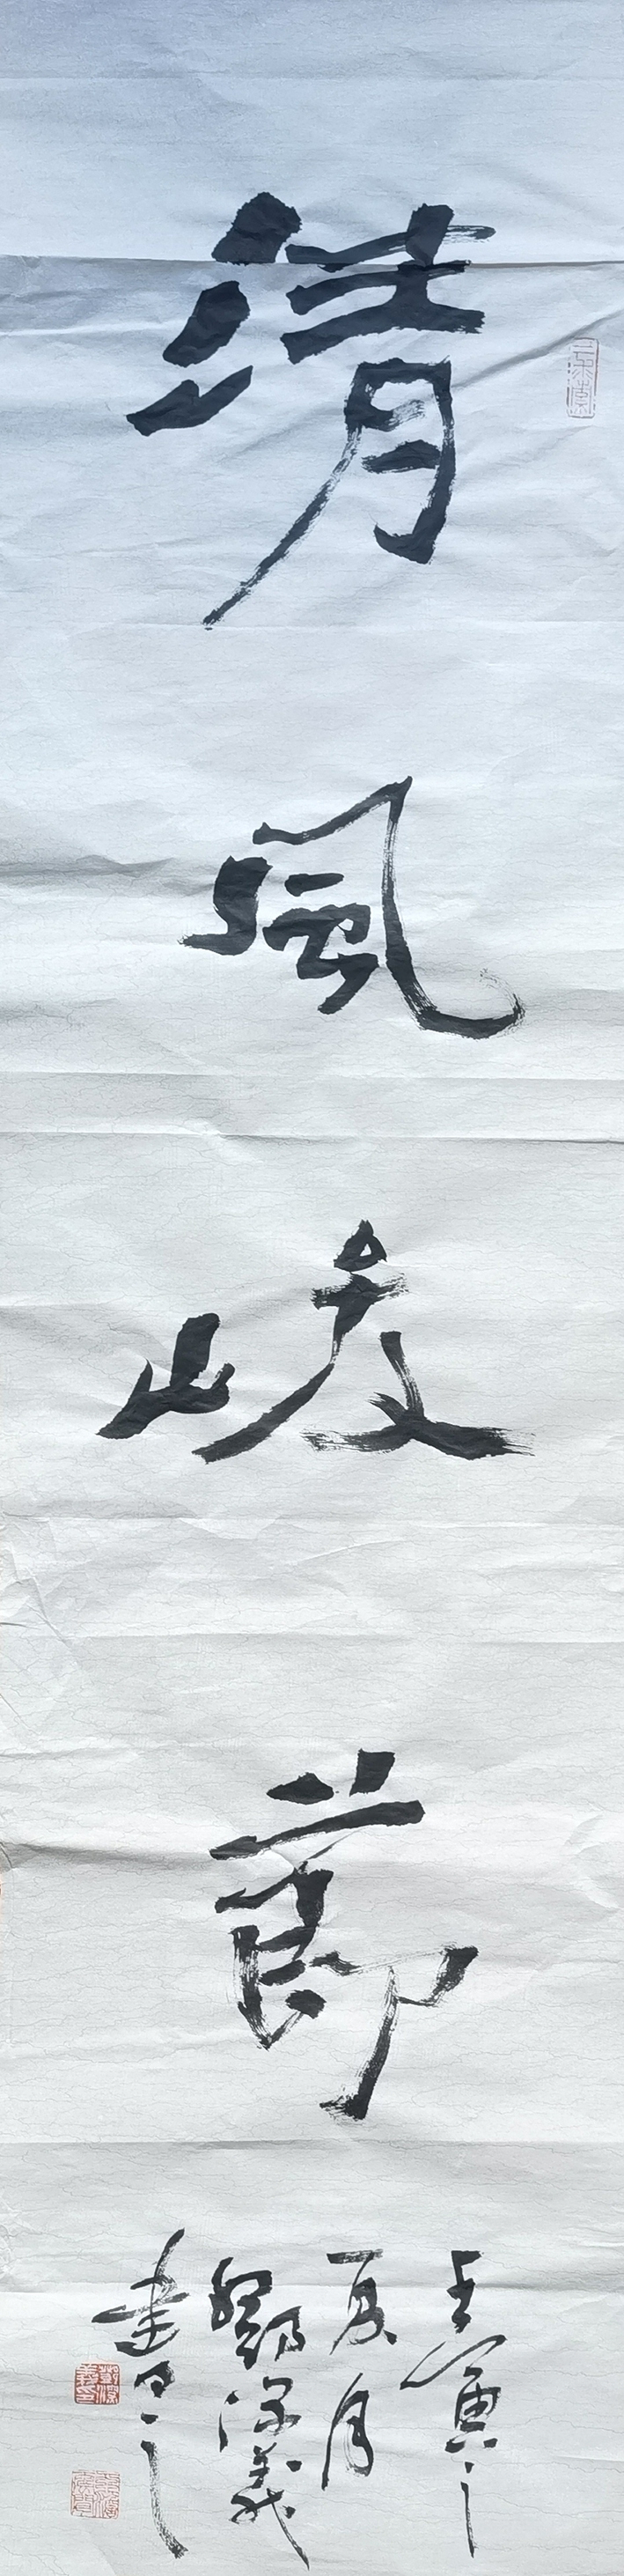 清風峻節
壬寅之
夏月
深義
書之